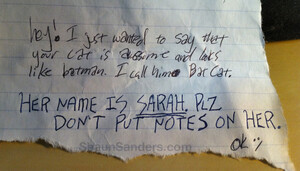 hey! I just wanted to say that
your cat is awesome and looks
like batman. I call him Bat Cat.
HER NAME IS SARAH. PLZ
DON'T PUT NOTES ON HER.
OK :)
StraunSanders.com